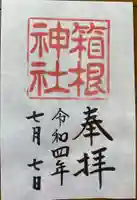 奉拝
箱根
神社
令和四年
七月七日